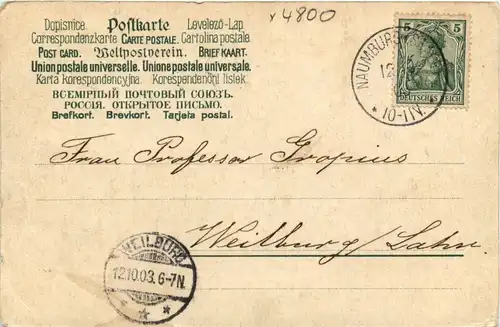 x 4800
Dopisnice Postkarte Levelező-Lap.
Correspondenzkarte CARTE POSTALE. Cartolina postale
POST CARD. Weltpostverein. BRIEFKAART.
Union postale universelle. Unione postale universale.
Karta korespondencyjna. Korespondenční lístek.
ВСЕМІРНЫЙ ПОЧТОВЫЙ СОЮЗЪ.
РОССІЯ. ОТКРЫТОЕ ПИСЬМО.
Brefkort. Brevkort. Tarjeta postal.
5 5
DEUTSCHES REICH
NAUMBURG
12
10-11V.
Frau Professor Gropius
Weilburg/Lahn.
WEILBURG
12.10.03. 6-7N.